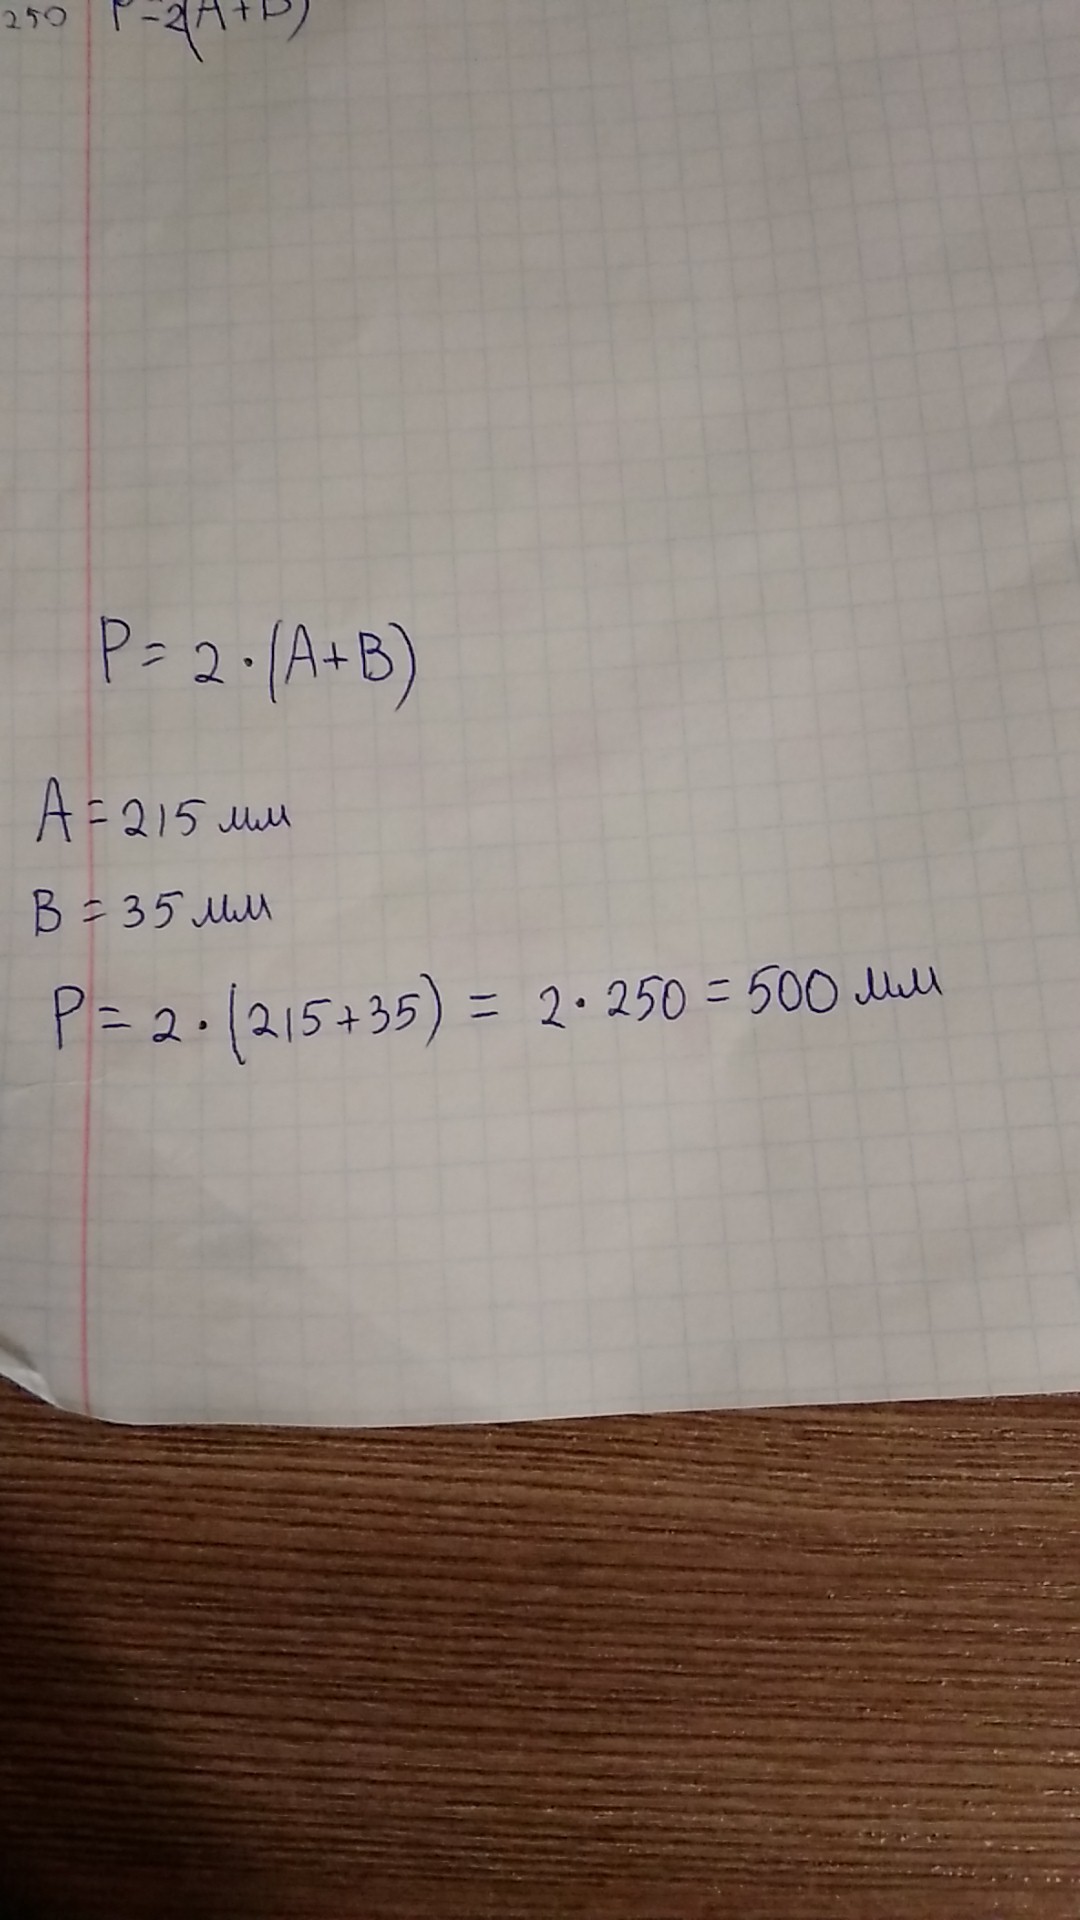 250 P=2(A+B)
P= 2·(A+B)
A=215 мм
B=35 мм
P= 2·(215+35) = 2·250=500 мм